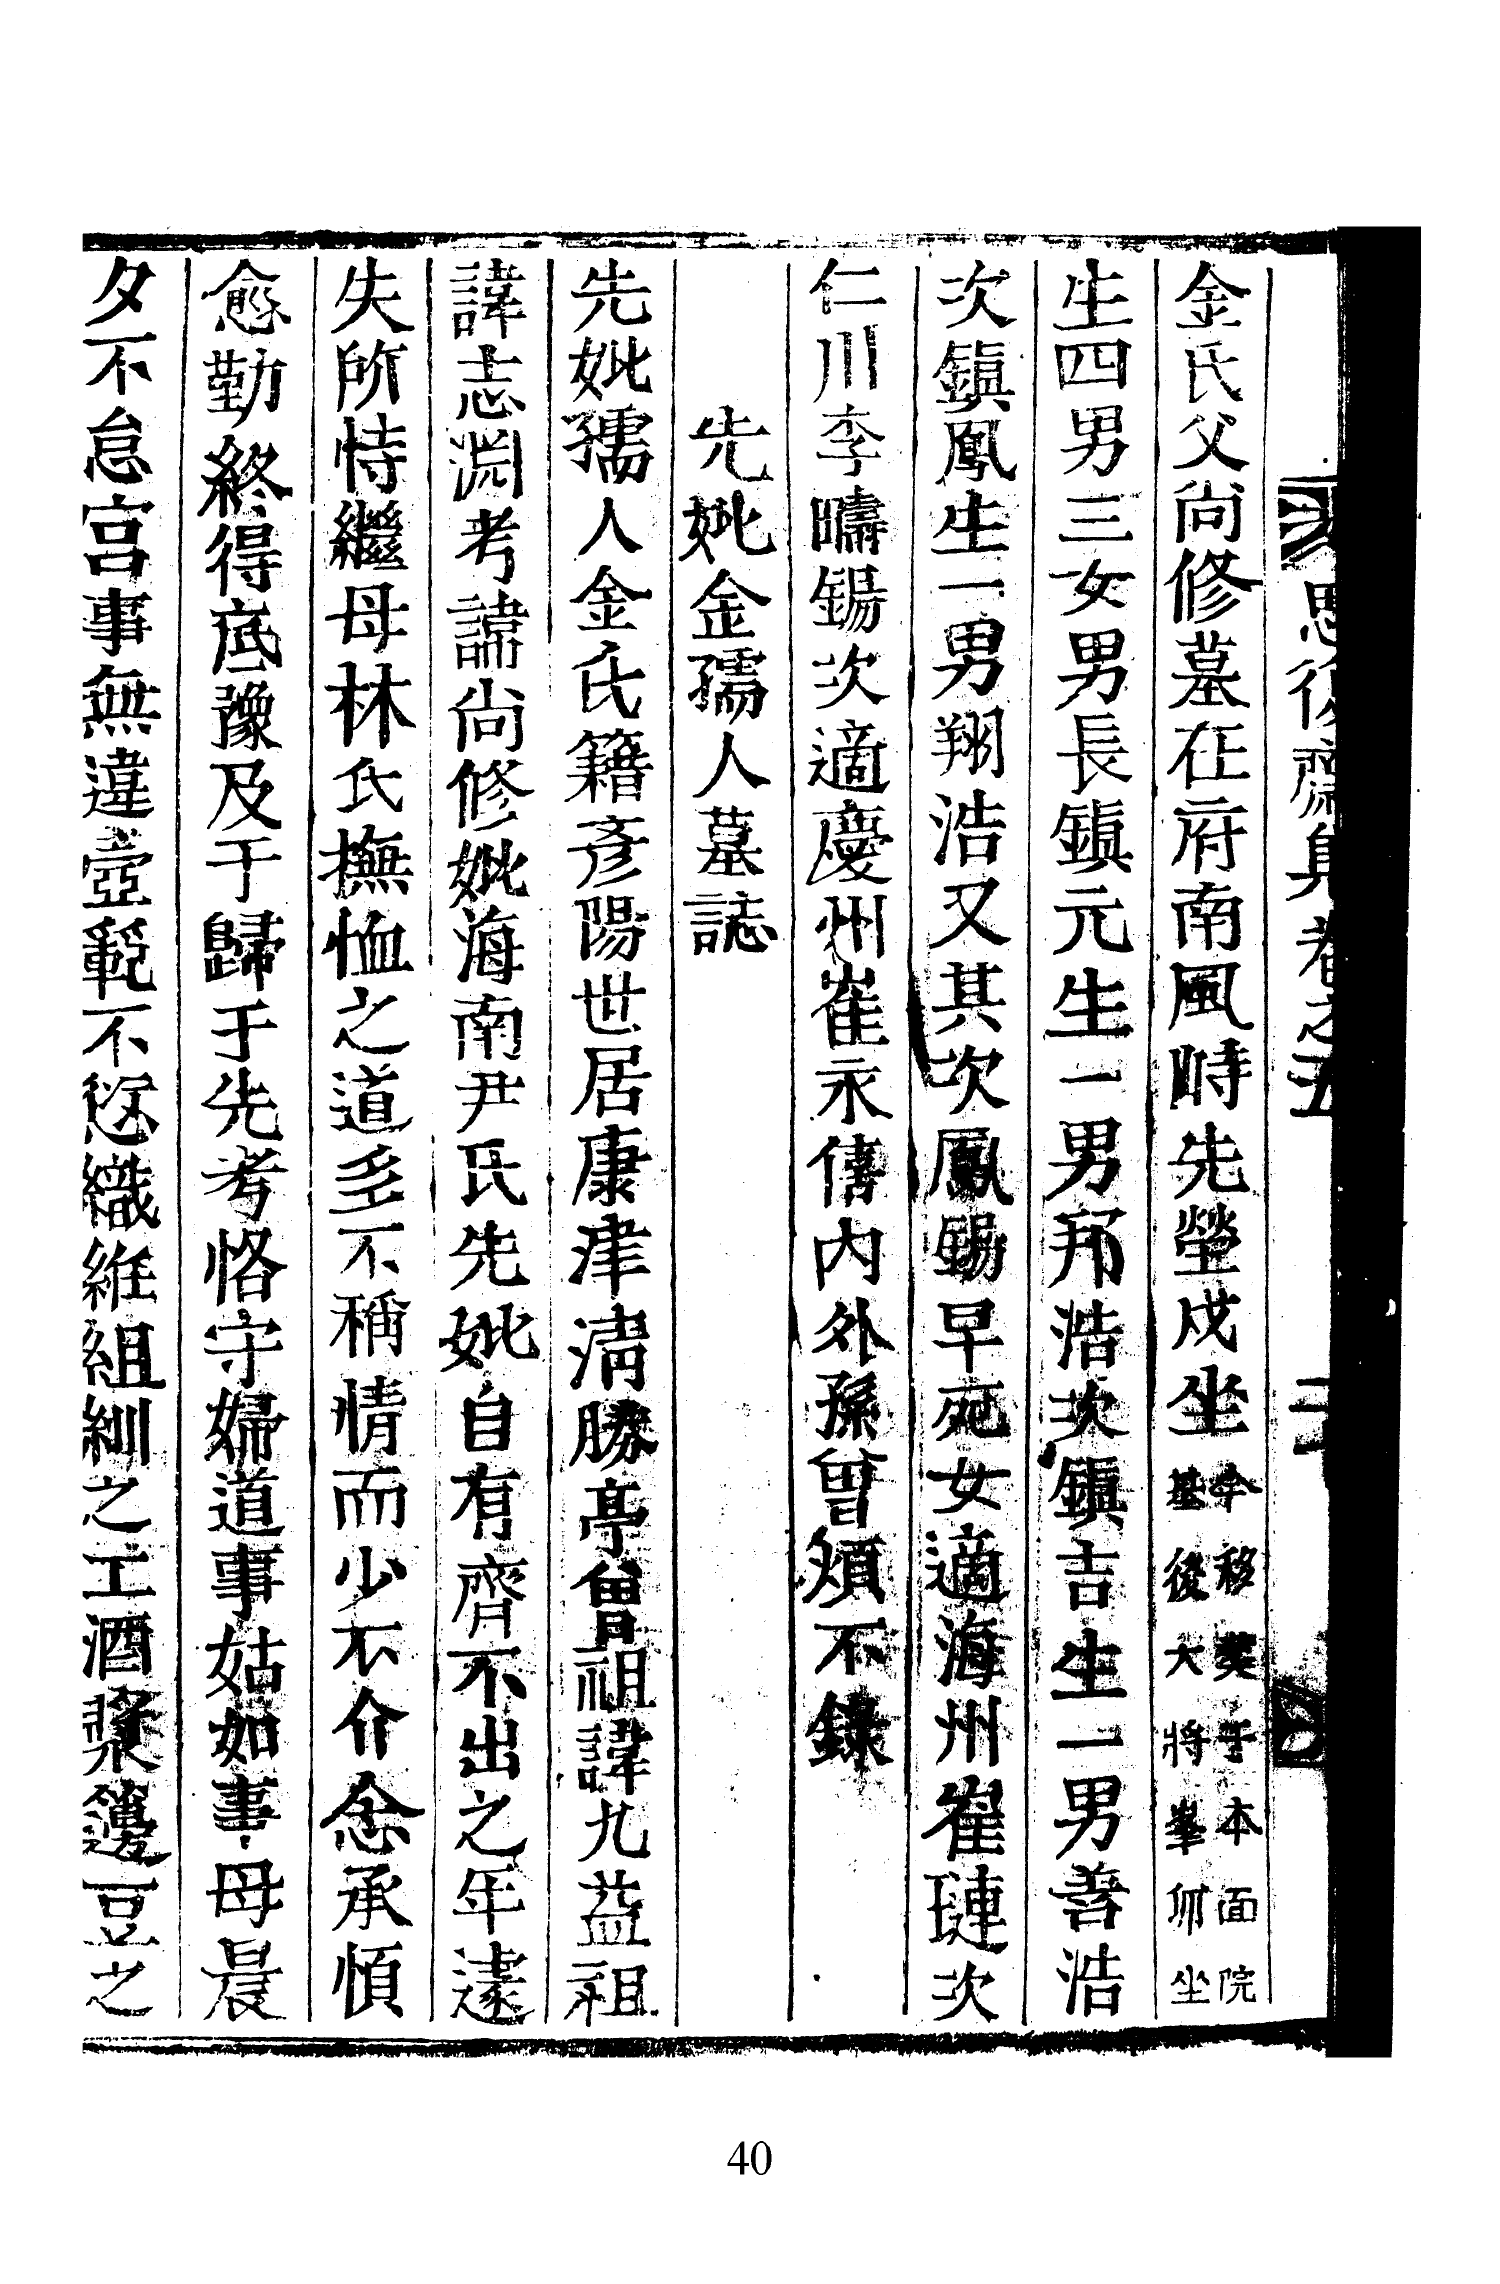 思復齋集卷之五 二
金氏父尙修墓在府南風峙先塋戌坐今移葬于本面院基後大將峯卯坐
生四男三女男長鎭元生一男邦浩次鎭吉生一男善浩
次鎭鳳生一男翔浩又其次鳳錫早死女適海州崔璉次
仁川李疇錫次適慶州崔永僖內外孫曾煩不錄
先妣金孺人墓誌
先妣孺人金氏籍彥陽世居康津淸勝亭曾祖諱九益祖
諱志淵考諱尙修妣海南尹氏先妣自有齊不出之年遽
失所恃繼母林氏撫恤之道多不稱情而少不介念承順
愈勤終得底豫及于歸于先考恪守婦道事姑如事母晨
夕不怠宮事無違壼範不愆織維組紃之工酒漿籩豆之
40